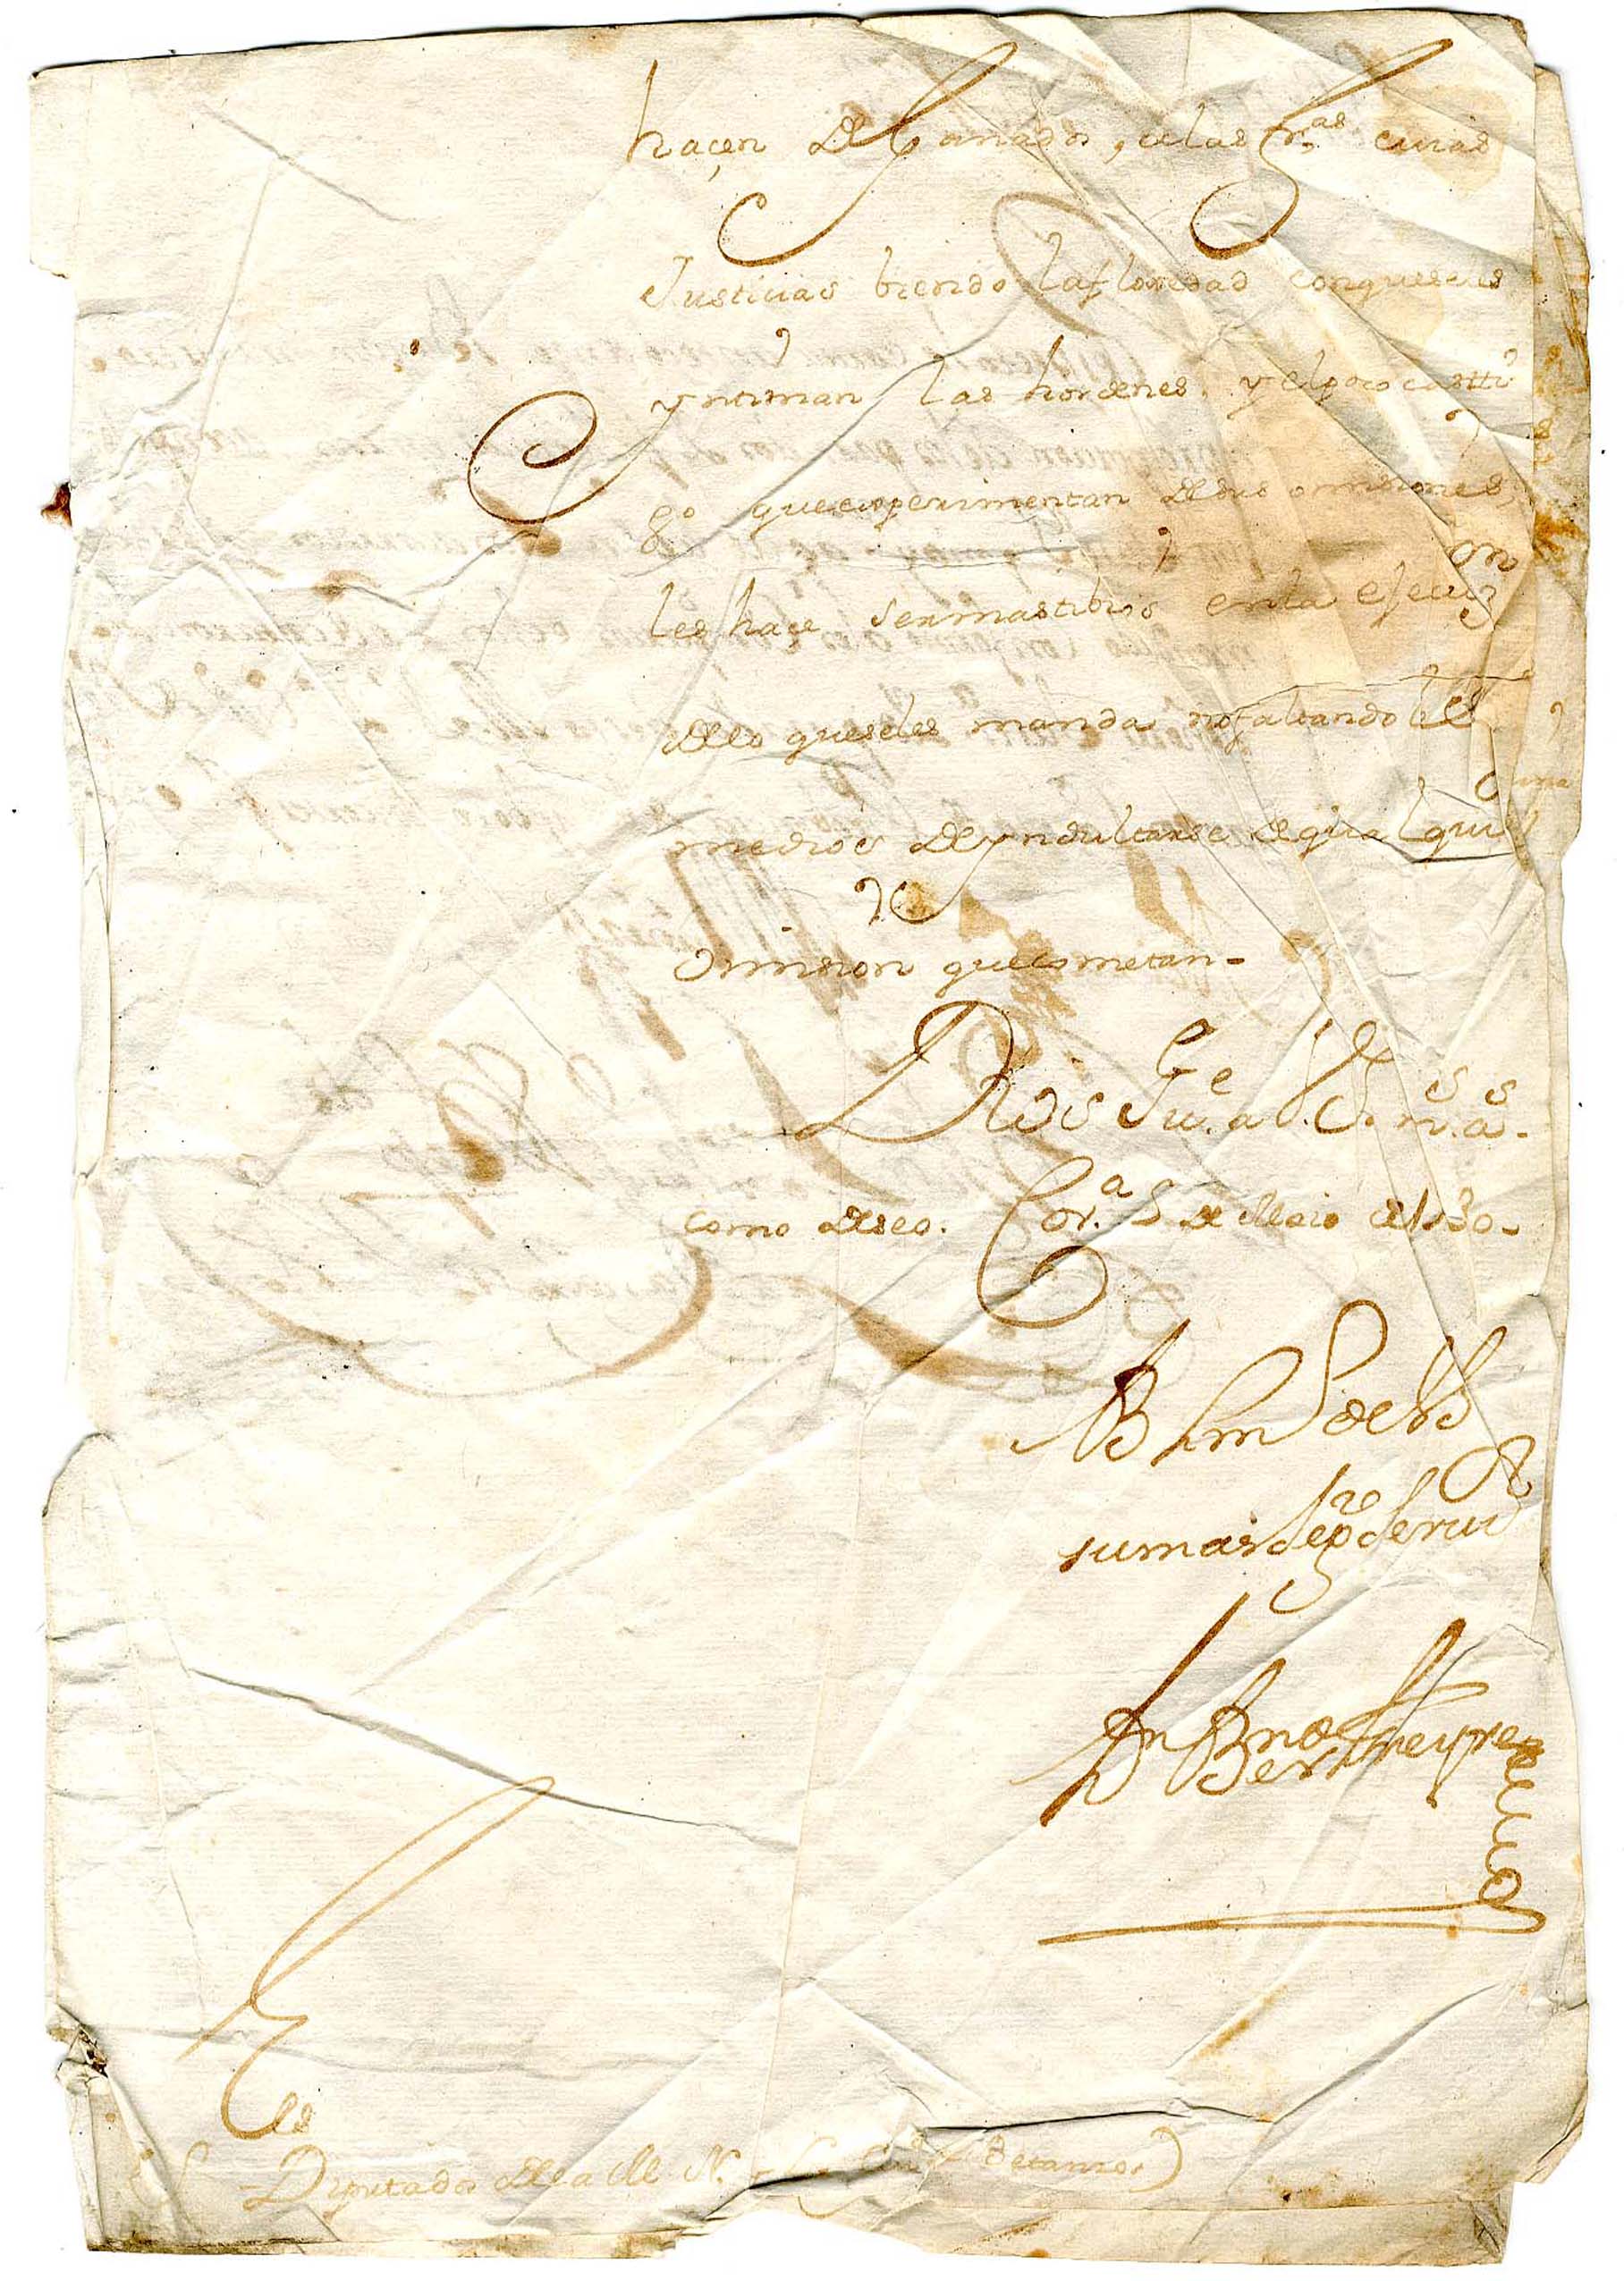 haçen de Ganados, de las Grãs cuias
Justicias biendo la floxedad conque seles
yntiman las hordenes, y el poco castti
go que experimentan de sus omisiones,
les haçe ser mas tibios en la ejecuz on
de lo que seles manda no faltando les
medios de yndultarse de qualquiera
omision que cometan-
Dios Gu.e a V.S. m.s a.s
como deseo. Cor.a 5 de Maio de 1730-
B L m de VS
su mas seg.ro servid.r
Dn Bn.do
Ser
Diputado de la M. N. y L. Ciud. Betanzos